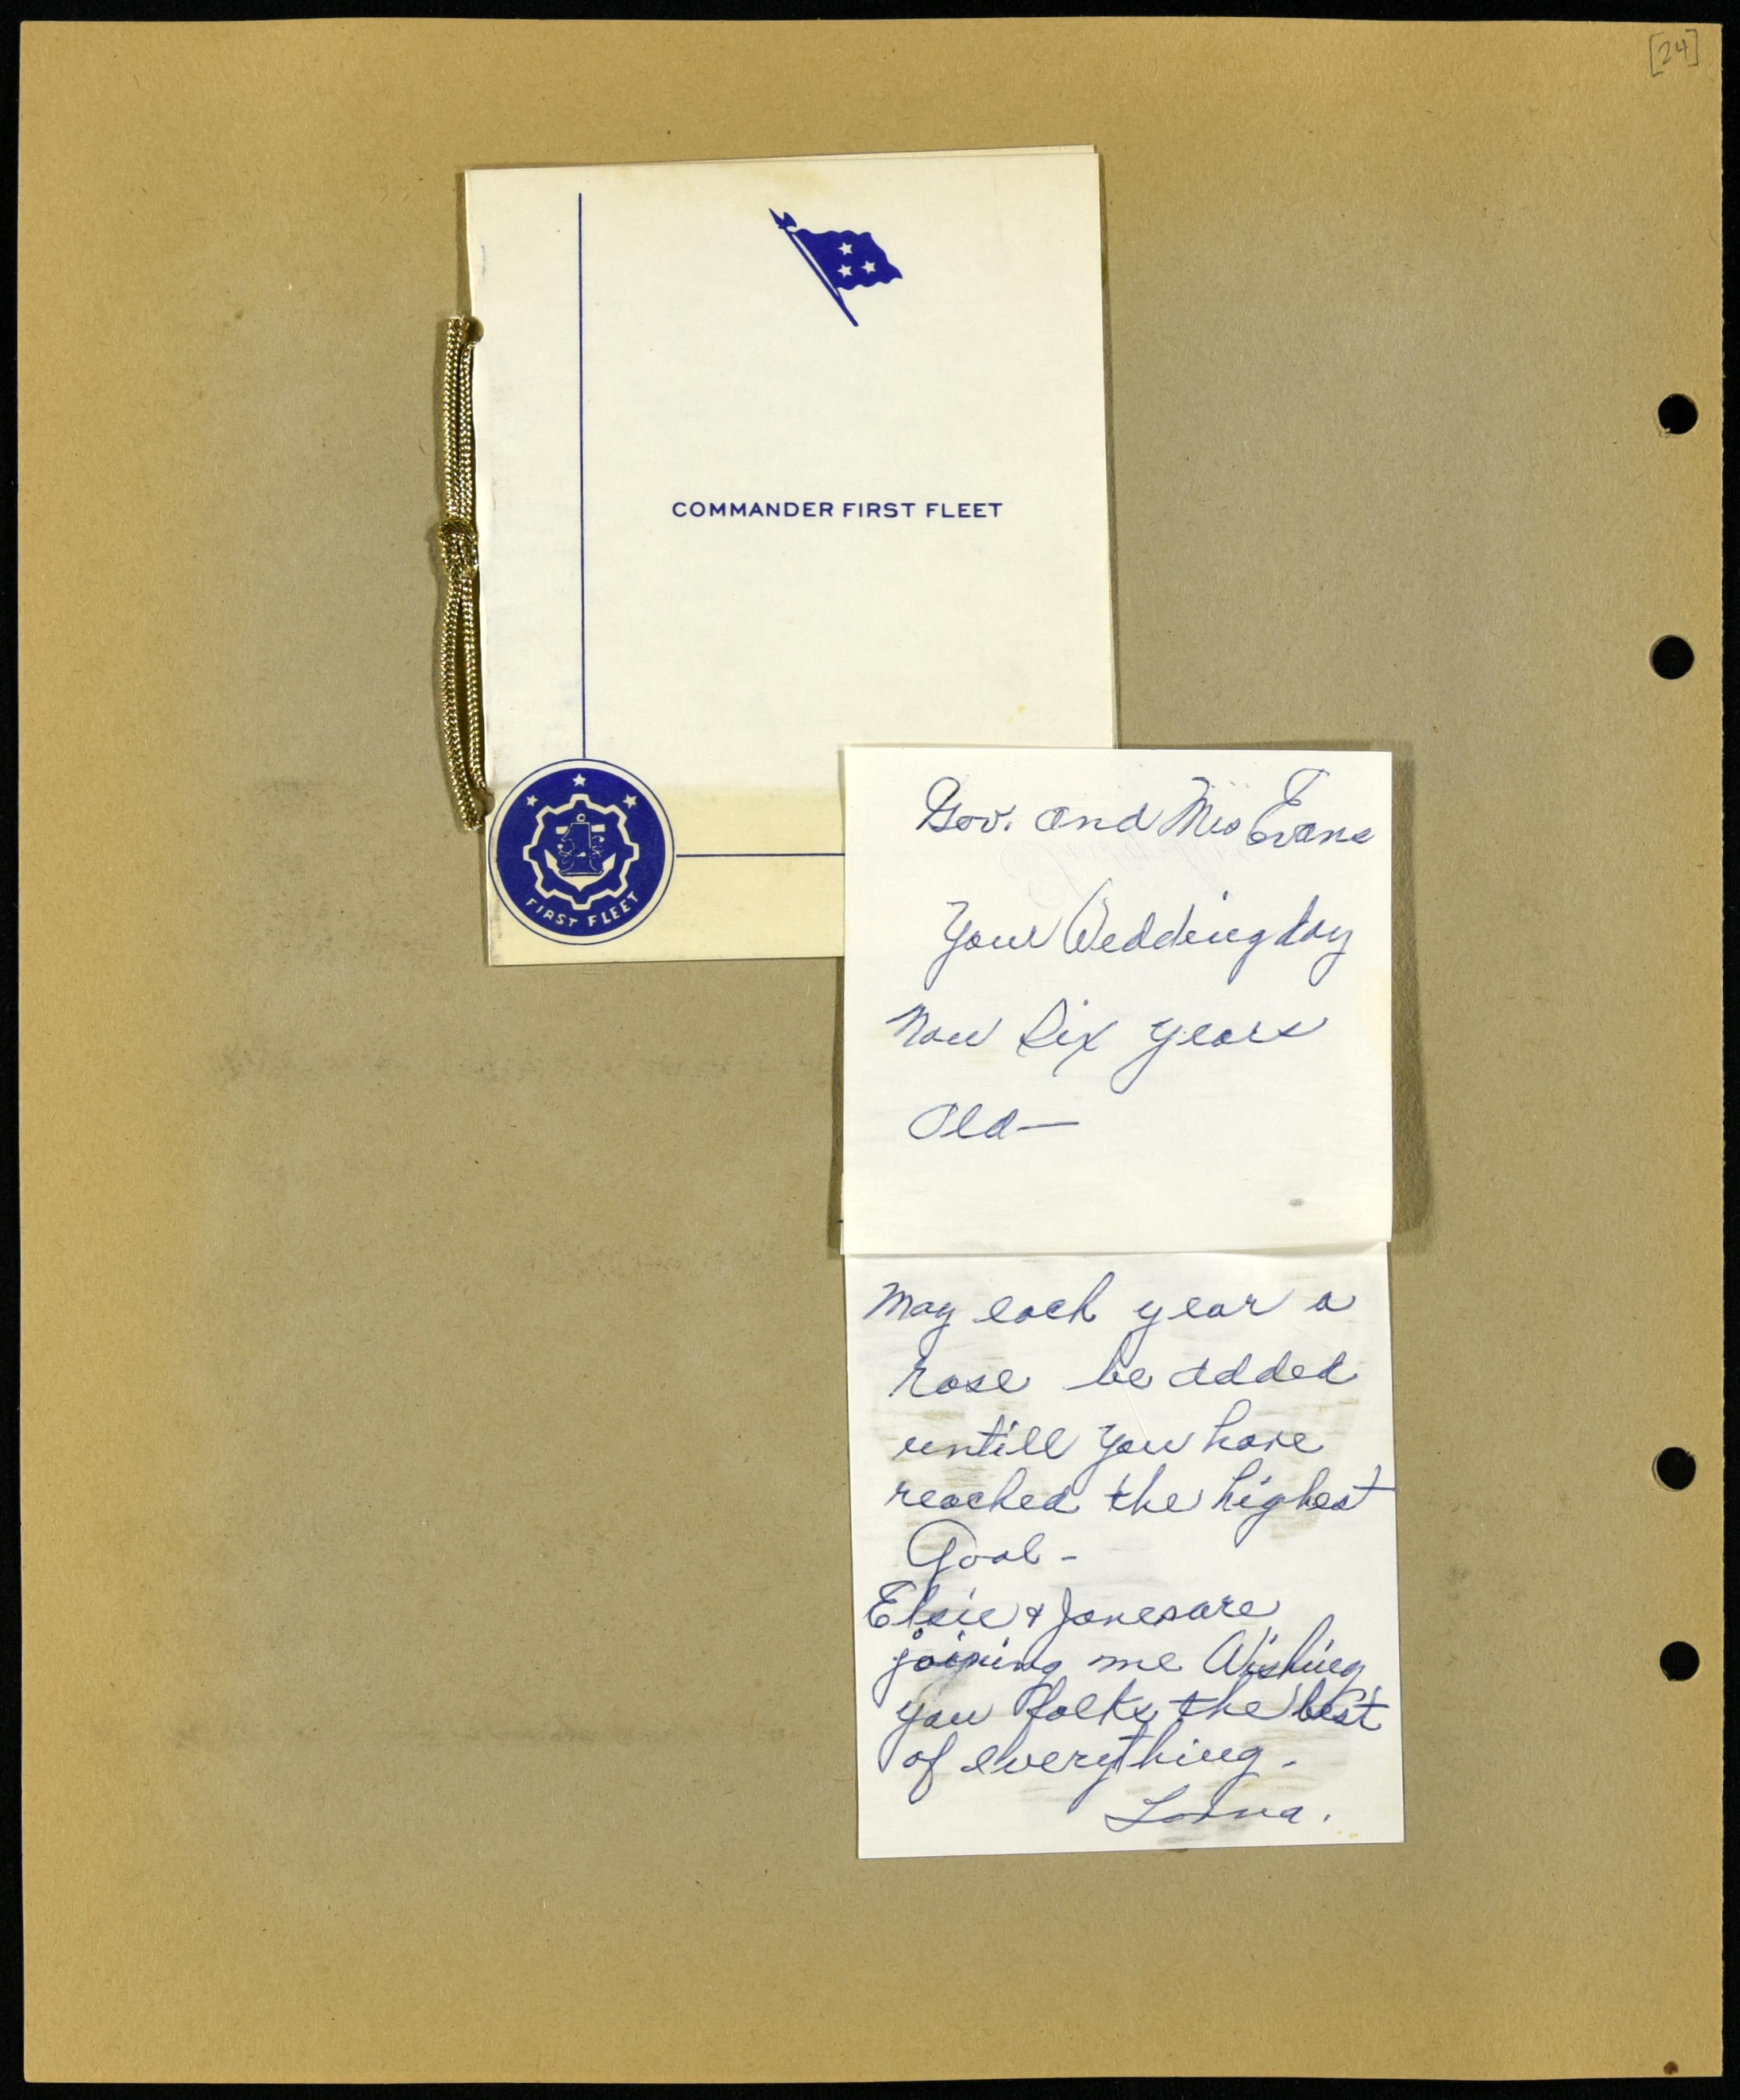 [24]
COMMANDER FIRST FLEET
FIRST FLEET
Gov. and Mrs Evans
Your Wedding day
Now Six years
Old—
May each year a
rose be added
untill you have
reached the highest
Goal -
Elsie & Jones are
joining me Wishing
you folks the best
of everything.
Lorna.